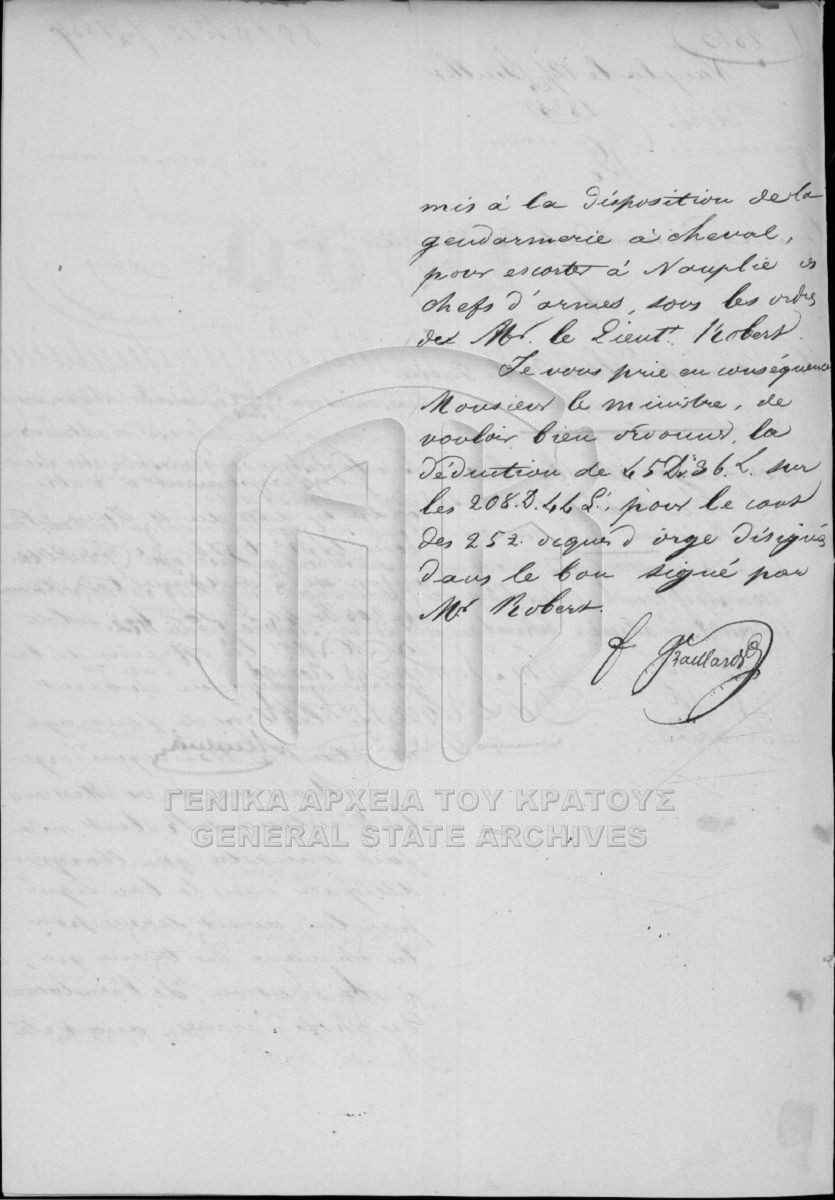 mis à la disposition de la
gendarmerie à cheval,
pour escorter à Nauplie
chefs d'armes, sous les ordres
de Mr. le Lieut. Robert.
Je vous prie en conséquence
Monsieur le ministre, de
vouloir bien la
déduction de 45 D. 36 L. sur
les 208. D. 44 L. pour le cout
des 252. ocques d'orge désignés
dans le bon signé par
Mr Robert.
Graillard
ΓΕΝΙΚΑ ΑΡΧΕΙΑ ΤΟΥ ΚΡΑΤΟΥΣ
GENERAL STATE ARCHIVES